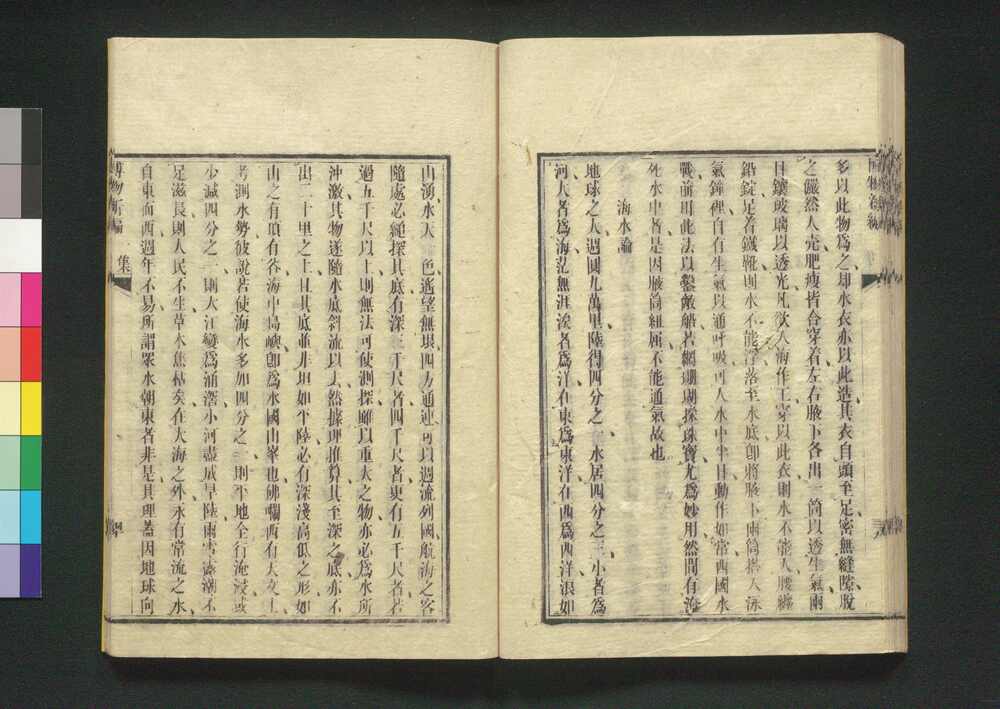 多以此物爲之却水衣亦以此造其衣自頭至足密無縫隙脫
之儼然人売肥瘦皆合穿着左右腋下各出一筒以透生氣兩
目鑲玻璃以透光凡欲入海作工穿以此衣則水不能入腰纏
鉛錠足着鐵靴則水不能浮落至水底卽將腋下兩筒搭入泳
氣鐘裡自有生氣以通呼吸可人水中半日動作如常西國水
戰前用此法以鑿敵船若網珊瑚探珠寶尤爲妙用然間有淹
死水中者是因腋筒紐屈不能通氣故也
海水論
地球之大週圓九萬里陸得四分之一水居四分之三小者爲
河大者爲海茫無涯涘者爲洋在東爲東洋在西爲西洋浪如
山湧水天一色遙望無垠四方通連可以週流列國航海之客
隨處必縋探其底有深三千尺者四千尺者更有五千尺者若
過五千尺以上則無法可使測探雖以重大之物亦必爲水所
沖激其物遂隨水底斜流以去然據理推算其至深之底亦不
出二十里之上且其底並非坦如平陸必有深淺高低之形如
山之有頂有谷海中島嶼卽爲水國山峯也佛囒西有天文士
考測水勢彼說若使海水多加四分之一則平地全行淹浸或
少減四分之一則大江變爲涌濇小河盡成旱陸雨雪露潮不
足滋長則人民不生草木焦枯矣在大海之外永有常流之水
自東而西週年不易所謂衆水朝東者非是其理蓋因地球向
博物新編
一集